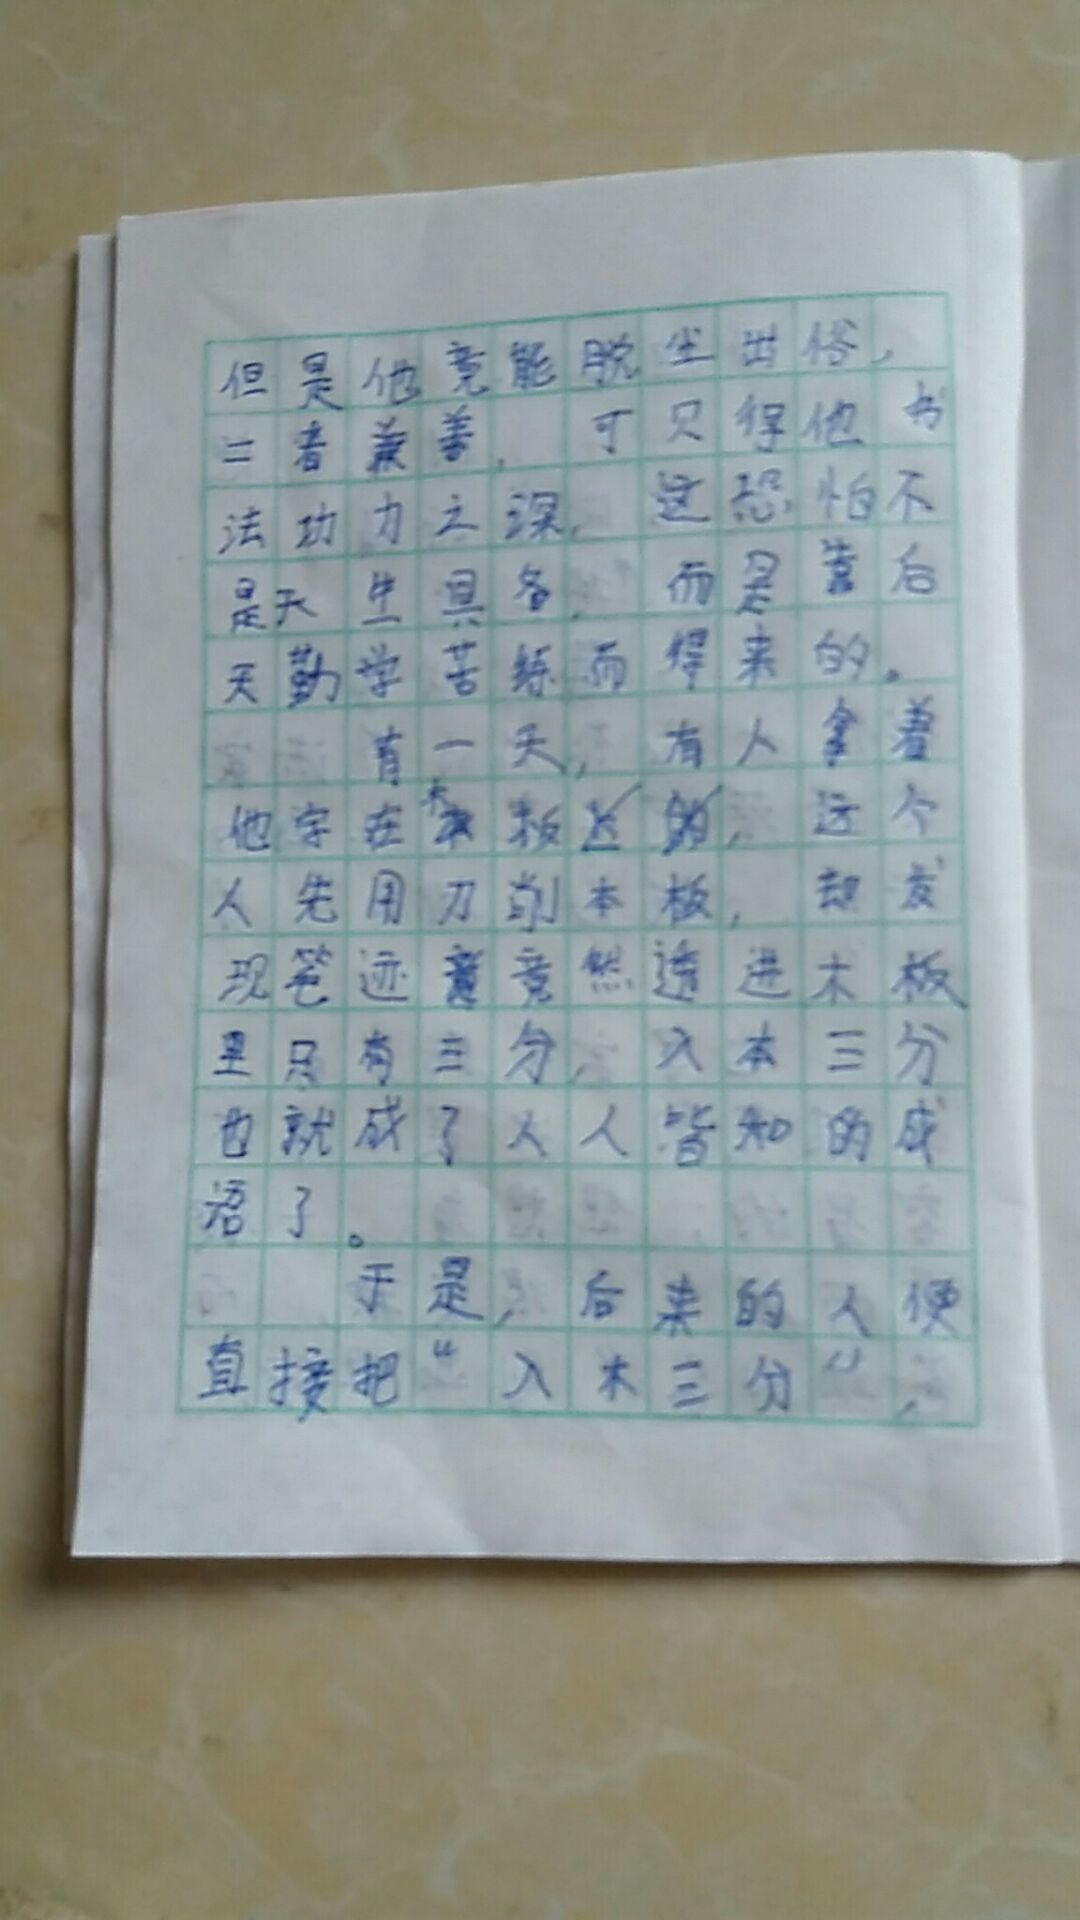 但是他竟能脱尘出俗，
二者兼善，可只得他书
法功力之深，这恐怕不
是天生具备，而是靠后
天勤学苦练而得来的。
有一天，有人拿着
他字在木板，这个
人先用刀削本板，却发
现笔迹竟然透进木板
里只有三分，入本三分
也就成了人人皆知的成
语了。
于是，后来的人便
直接把“入木三分”，